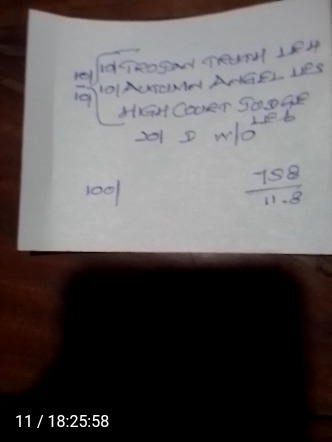 10/ TROJAN TRUTH LE4
10/ 10/ AUTUMN ANGEL LE5
10/ HIGH COURT JUDGE
LE6
20/ D W/O
100/
758
11-8
11 / 18:25:58